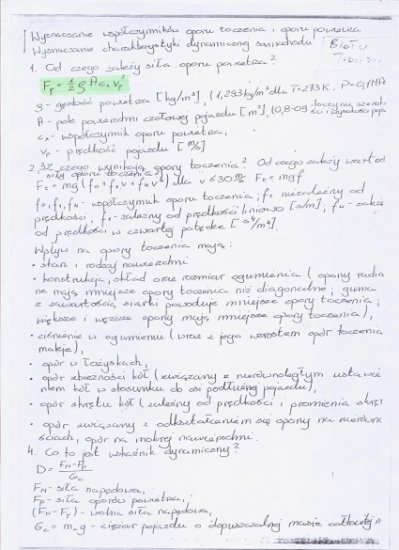 Wyznaczanie współczynników oporu toczenia i oporu powietrza
Wyznaczanie charakterystyki dynamicznej samochodu
1. Od czego zależy siła oporu powietrza?
Fp = 1/2 ρ A cx vp²
ρ - gęstość powietrza [kg/m³], (1,293 kg/m³ dla T=273K, P=0,1MPa
A - pole powierzchni czołowej pojazdu [m²], (0,8-09
cx - współczynnik oporu powietrza,
vp - prędkość pojazdu [m/s]
czego wynikają opory toczenia? Od czego zależy wartość
siły oporu toczenia?
Ft = mg(f0+f1v+f4v4) dla v≤30 m/s Ft = mgf
f0, f1, f4 - współczynnik oporu toczenia; f0 niezależny od
prędkości, f1 - zależny od prędkości liniowo [s/m]; f4 - zależy
od prędkości w czwartej potędze [s4/m4].
Wpływ na opory toczenia mają:
• stan i rodzaj nawierzchni
• konstrukcja, skład oraz rozmiar ogumienia (opony radial
ne mają mniejsze opory toczenia niż diagonalne; guma
z zawartością siarki powoduje mniejsze opory toczenia;
większe i węższe opony mają mniejsze opory toczenia),
• ciśnienie w ogumieniu (wraz z jego wzrostem opór toczenia
maleje),
• opór w łożyskach,
• opór zbieżności kół (związany z nierównoległym ustawie
niem kół w stosunku do osi podłużnej pojazdu),
• opór skrętu kół (zależny od prędkości i promienia skrętu
• opór związany z odkształcaniem się opony na nierówno
ściach, opór na mokrej nawierzchni.
4. Co to jest wskaźnik dynamiczny?
D = FN-Fp / Gc
FN - siła napędowa,
Fp - siła oporów powietrza,
(FN - Fp) - wolna siła napędowa,
Gc = mc g - ciężar pojazdu o dopuszczalnej masie całkowitej